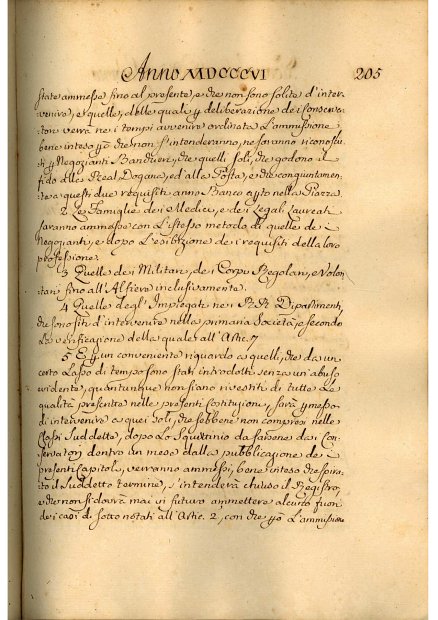 Anno MDCCCVI 205
state ammesse fino al presente, e che non sono solite d'inter-
venire, e quelle, delle quali p deliberazione dei Conserva-
tori verrà ne i tempi avvenire ordinata l'ammissione
bene inteso che non s'intenderanno, ne saranno riconosciu-
ti p Negozianti Banchieri, che quelli soli, che godono il
fido alle Real Dogana, ed alla Posta, e che congiuntamen-
te a questi due requisiti anno Banco apto nella Piazza.
2 Le Famiglie dei Medici, e dei Legali Laureati
saranno ammesse con l'istesso metodo di quelle de i
Negozianti, e dopo l'esibizione dei requisiti della loro
professione.
3 Quelle dei Militari, dei Corpi Regolari, e Volon-
tari fino all'Alfiere inclusivamente.
4 Quelle degl'Impiegati nei RR. Dipartimenti,
che sono soliti d'intervenire nella primaria Società, e secondo
la verificazione della quale all'Artic. 7
5 E p un conveniente riguardo a quelli, che da un
certo lasso di tempo sono stati introdotti senza un abuso
evidente, quantunque non siano rivestiti di tutte le
qualità prescritte nelle presenti Costituzioni, sarà pmesso
di intervenire a quei soli, che sebbene non compresi nelle
Classi suddette, dopo lo Squittinio da farsene dai Con-
servatori dentro un mese dalla pubblicazione de i
presenti Capitoli, verranno ammessi, bene inteso che spira-
to il suddetto termine, s'intenderà chiuso il Registro,
e che non si dovrà mai in futuro ammettere alcuno fuori
dei casi di sotto notati all'Artic. 2, con che po l'ammissione